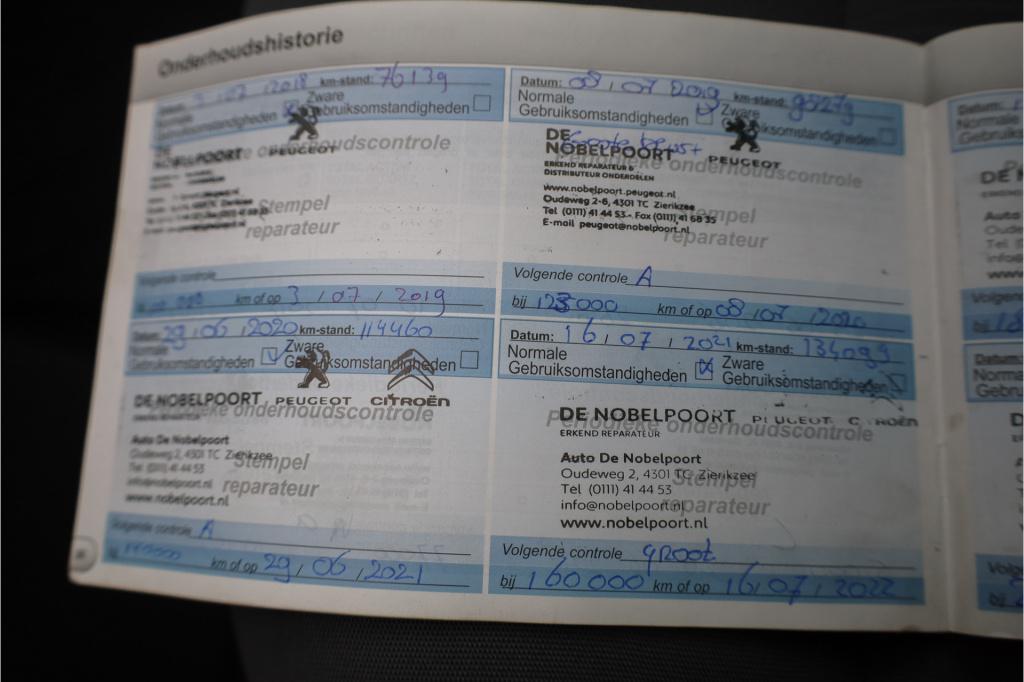 Onderhoudshistorie
07 2018 km-stand: 76139
Zware
Gebruiksomstandigheden
NOBELPOORT PEUGEOT
onderhoudscontrole
Stempel
reparateur
Volgende controle
km of op 3 / 07 / 2019
Datum: 08 / 07 2019 km-stand:
Normale Zware
Gebruiksomstandigheden
DE
NOBELPOORT PEUGEOT
Periodieke onderhoudscontrole
ERKEND REPARATEUR &
DISTRIBUTEUR ONDERDELEN
www.nobelpoort.peugeot.nl
Oudeweg 2-6, 4301 TC Zierikzee
Tel (0111) 41 44 53 - Fax (0111) 41 68 35
E-mail peugeot@nobelpoort.nl
Stempel
reparateur
Volgende controle A
bij km of op 08 / 07 / 2020
Datum: 29 / 06 / 2020 km-stand: 114460
Normale Zware
Gebruiksomstandigheden Gebruiksomstandigheden
DE NOBELPOORT PEUGEOT CITROËN
onderhoudscontrole
Auto De Nobelpoort
Oudeweg 2, 4301 TC Zierikzee
Tel (0111) 41 44 53
info@nobelpoort.nl
www.nobelpoort.nl
Stempel
reparateur
Volgende controle A
km of op 29 / 06 / 2021
Datum: 16 / 07 / 2021 km-stand: 134099
Normale Zware
Gebruiksomstandigheden Gebruiksomstandigheden
DE NOBELPOORT PEUGEOT CITROËN
Periodieke onderhoudscontrole
ERKEND REPARATEUR
Auto De Nobelpoort
Oudeweg 2, 4301 TC Zierikzee
Tel (0111) 41 44 53
info@nobelpoort.nl
www.nobelpoort.nl
Stempel
reparateur
Volgende controle groot
bij 160000 km of op 16 / 07 / 2022